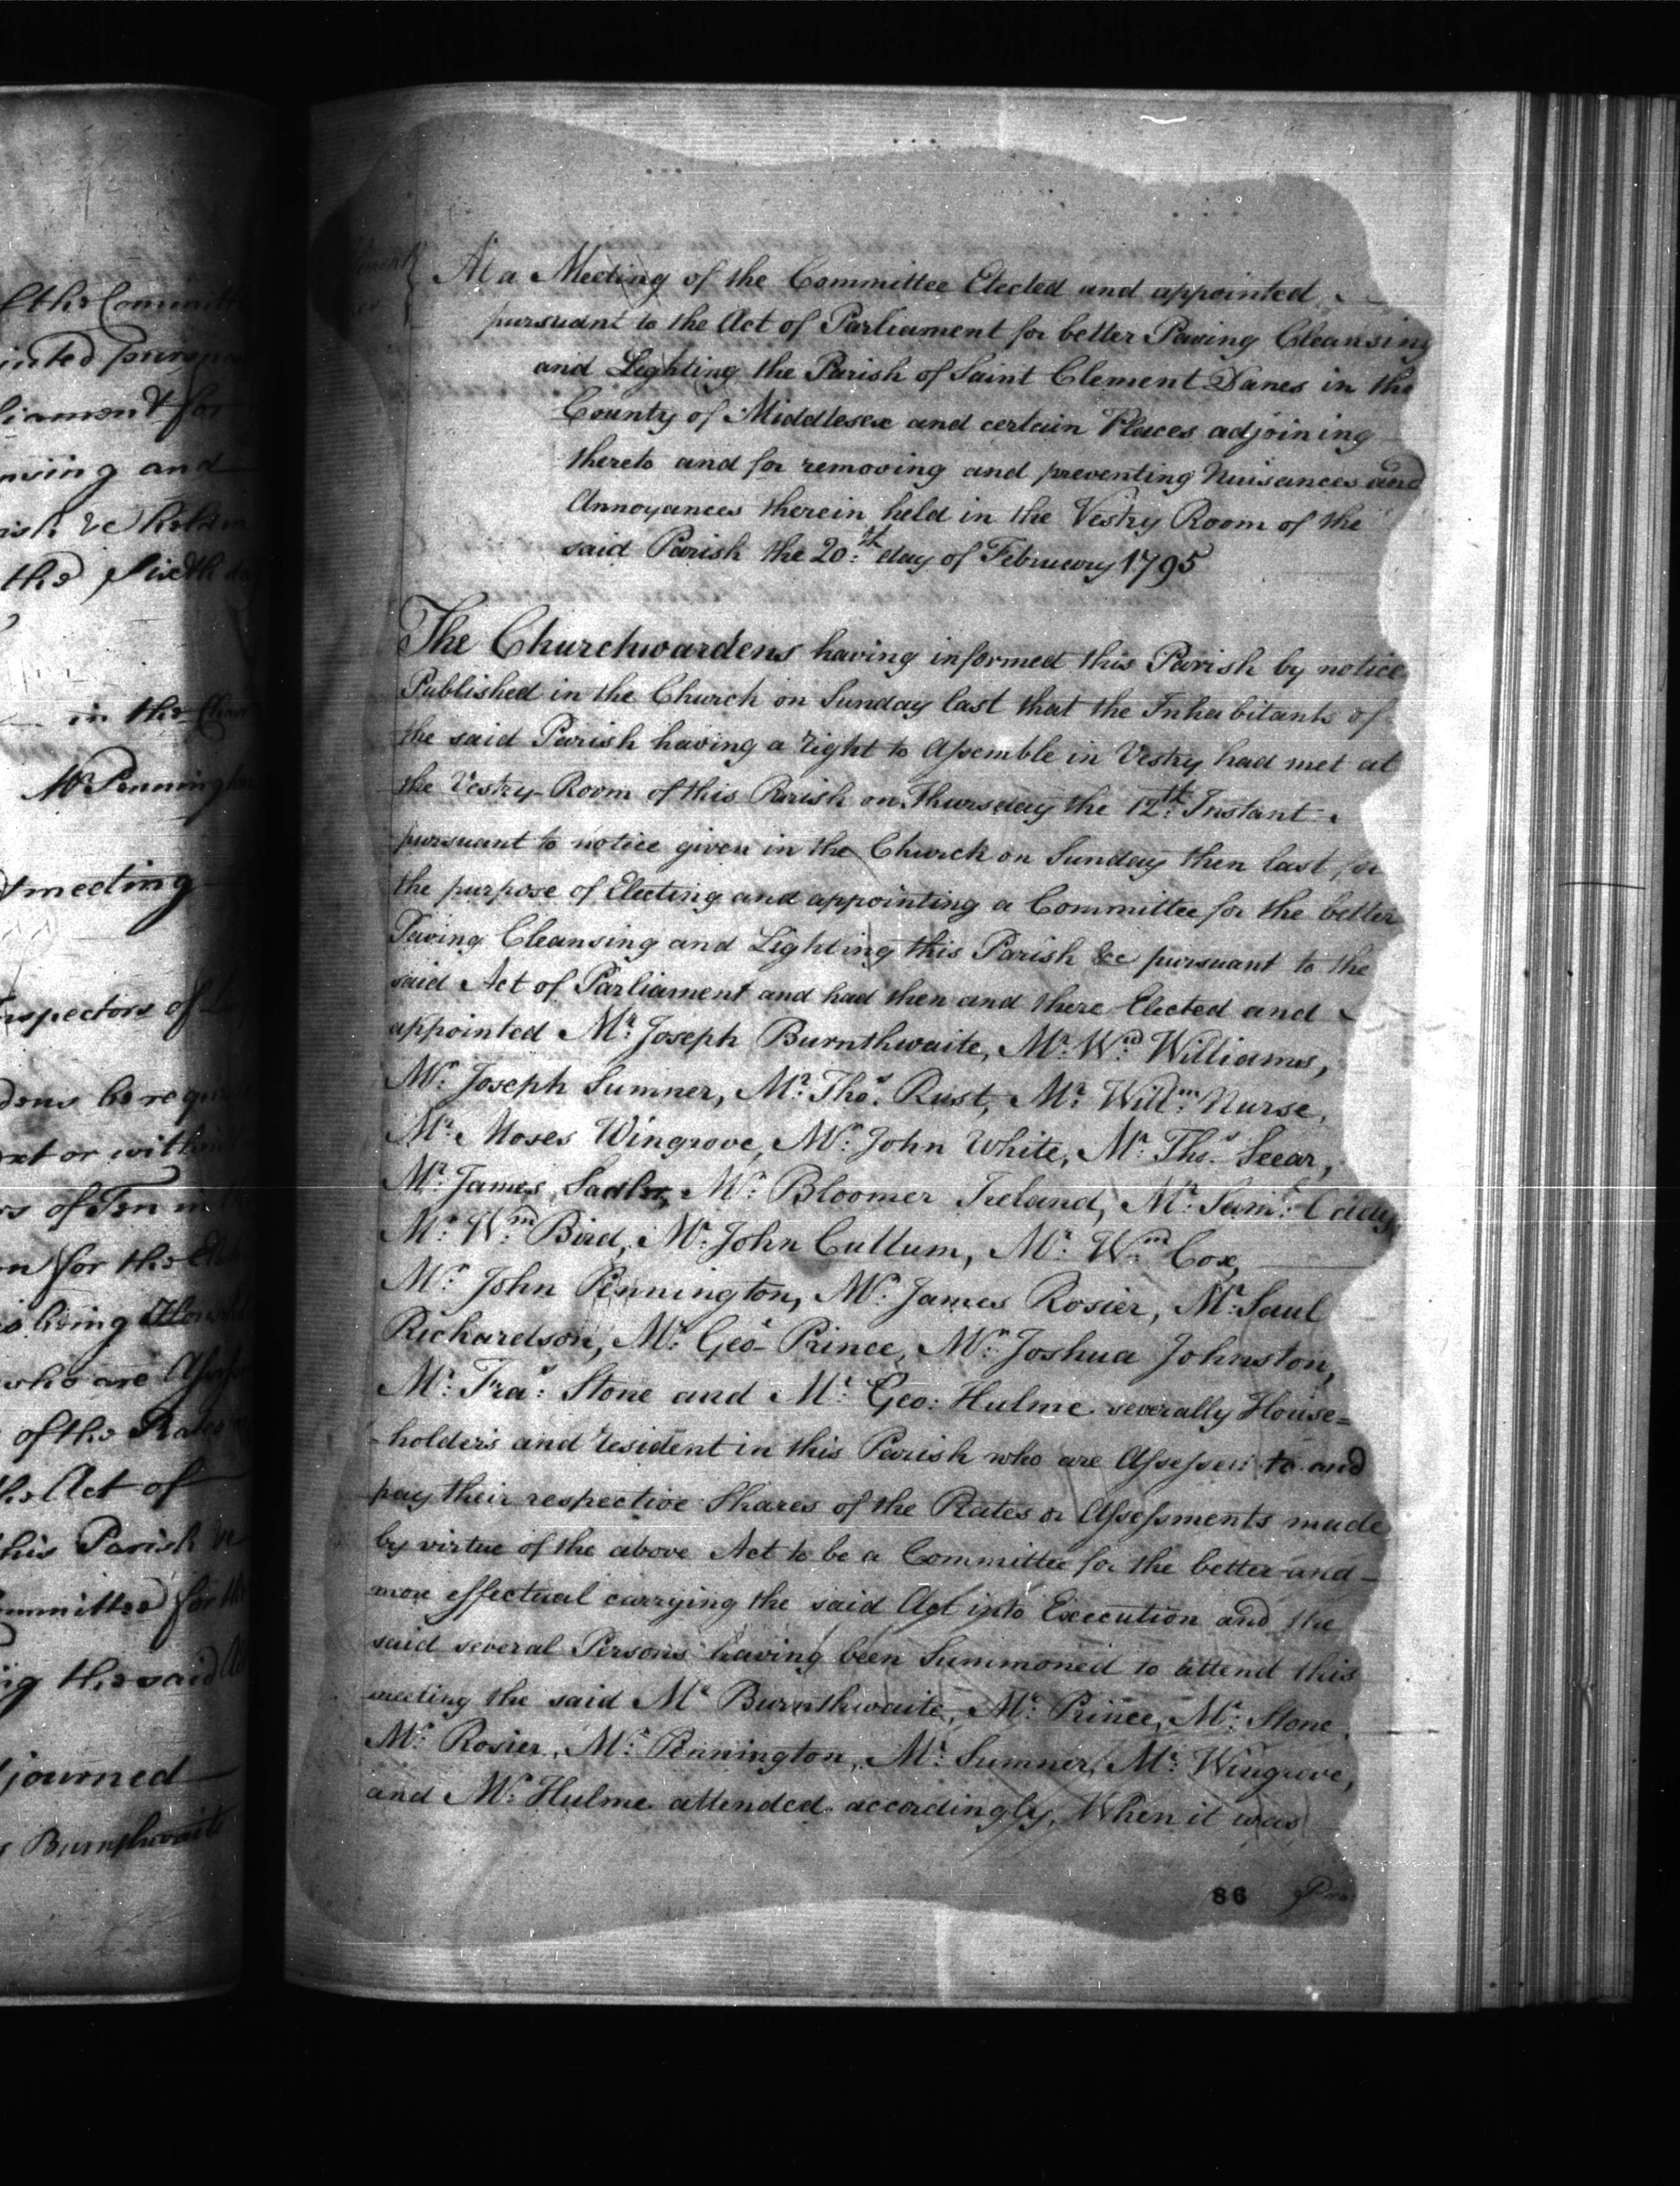 f the Committ
inted pursua
liament for
nsing and
the Sixth da
in the Chair
Mr. Pennington
meeting
nspectors of
dens be requi
ext or within
rs of Ten
n for the
s being
who are Asse
of the Rates
the Act of
his Parish
mmittee for the
g the said
journed
Burnthwaite
At a Meeting of the Committee Elected and appointed
pursuant to the Act of Parliament for better Paving Cleansing
and Lighting the Parish of Saint Clement Danes in the
County of Middlesex and certain Places adjoining
thereto and for removing and preventing Nuisances and
Annoyances therein held in the Vestry Room of the
said Parish the 20th. day of February 1795
The Churchwardens having informed this Parish by notice
Published in the Church on Sunday last that the Inhabitants of
the said Parish having a right to Assemble in Vestry had met at
the Vestry-Room of this Parish on Thursday the 12th. Instant
pursuant to notice given in the Church on Sunday then last for
the purpose of Electing and appointing a Committee for the better
Paving Cleansing and Lighting this Parish &c pursuant to the
said Act of Parliament and had then and there Elected and
appointed Mr. Joseph Burnthwaite, Mr. Wm. Williams,
Mr. Joseph Sumner, Mr. Thos. Rust, Mr. Willm. Nurse,
Mr. Moses Wingrove, Mr. John White, Mr. Thos. Seear,
Mr. James Sadler, Mr. Bloomer Ireland, Mr. Saml.
Mr. Wm. Bird, Mr. John Cullum, Mr. Wm. Cox,
Mr. John Pennington, Mr. James Rosier, Mr. Saul
Richardson, Mr. Geo. Prince, Mr. Joshua Johnston,
Mr. Fras. Stone and Mr. Geo: Hulme severally House=
-holders and resident in this Parish who are Assessed to and
pay their respective Shares of the Rates or Assessments made
by virtue of the above Act to be a Committee for the better and
more effectual carrying the said Act into Execution and the
said several Persons having been Summoned to attend this
meeting the said Mr. Burnthwaite, Mr. Prince, Mr. Stone
Mr. Rosier, Mr. Pennington, Mr. Sumner, Mr. Wingrove,
and Mr. Hulme attended accordingly, When it was
86